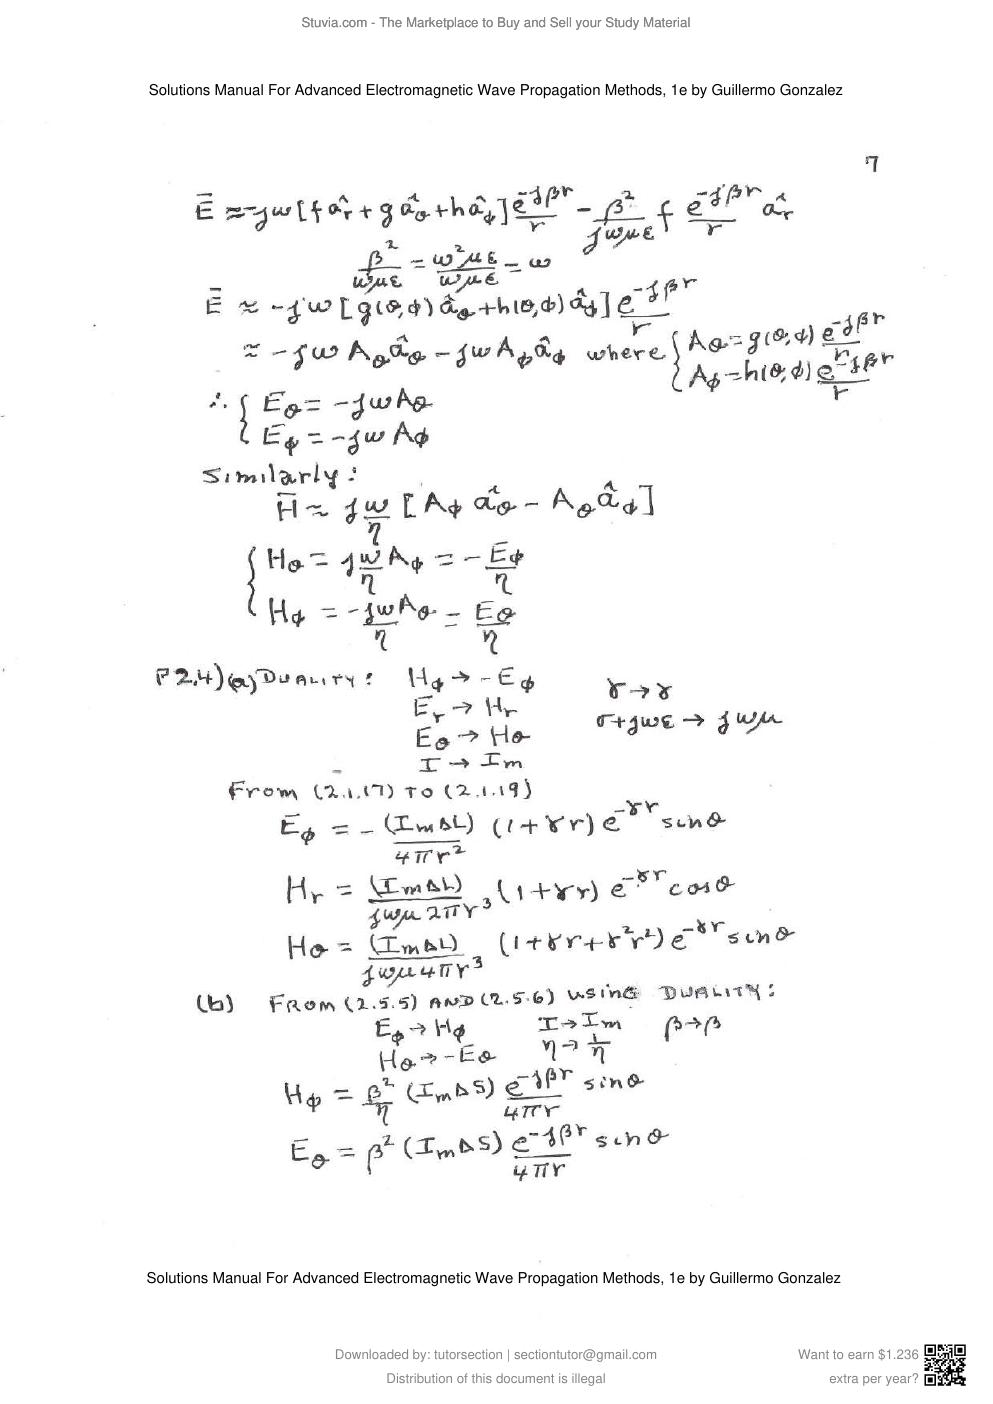 Stuvia.com - The Marketplace to Buy and Sell your Study Material
Solutions Manual For Advanced Electromagnetic Wave Propagation Methods, 1e by Guillermo Gonzalez
7
Ē ≈ -jω[f âr + g âθ + h âϕ] e^-jβr/r - β²/jωμε f e^-jβr/r âr
β²/ωμε = ω²με/ωμε = ω
Ē ≈ -jω [g(θ,ϕ) âθ + h(θ,ϕ) âϕ] e^-jβr/r
≈ -jω Aθ âθ - jω Aϕ âϕ where { Aθ = g(θ,ϕ) e^-jβr/r
Aϕ = h(θ,ϕ) e^-jβr/r
∴ { Eθ = -jωAθ
Eϕ = -jω Aϕ
Similarly:
H̄ ≈ jω/η [Aϕ âθ - Aθ âϕ]
{ Hθ = jω/η Aϕ = - Eϕ/η
Hϕ = -jωAθ/η = Eθ/η
P2.4) (a) DUALITY: Hϕ → -Eϕ γ → γ
Er → Hr σ+jωε → jωμ
Eθ → Hθ
I → Im
From (2.1.17) TO (2.1.19)
Eϕ = - (ImΔL)/4πr² (1+γr) e^-γr sinθ
Hr = (ImΔL)/jωμ2πr³ (1+γr) e^-γr cosθ
Hθ = (ImΔL)/jωμ4πr³ (1+γr+γ²r²) e^-γr sinθ
(b) FROM (2.5.5) AND (2.5.6) using DUALITY:
Eϕ → Hϕ I → Im β → β
Hθ → -Eθ η → 1/η
Hϕ = β²/η (ImΔS) e^-jβr/4πr sinθ
Eθ = β² (ImΔS) e^-jβr/4πr sinθ
Solutions Manual For Advanced Electromagnetic Wave Propagation Methods, 1e by Guillermo Gonzalez
Downloaded by: tutorsection | sectiontutor@gmail.com Want to earn $1.236
Distribution of this document is illegal extra per year?